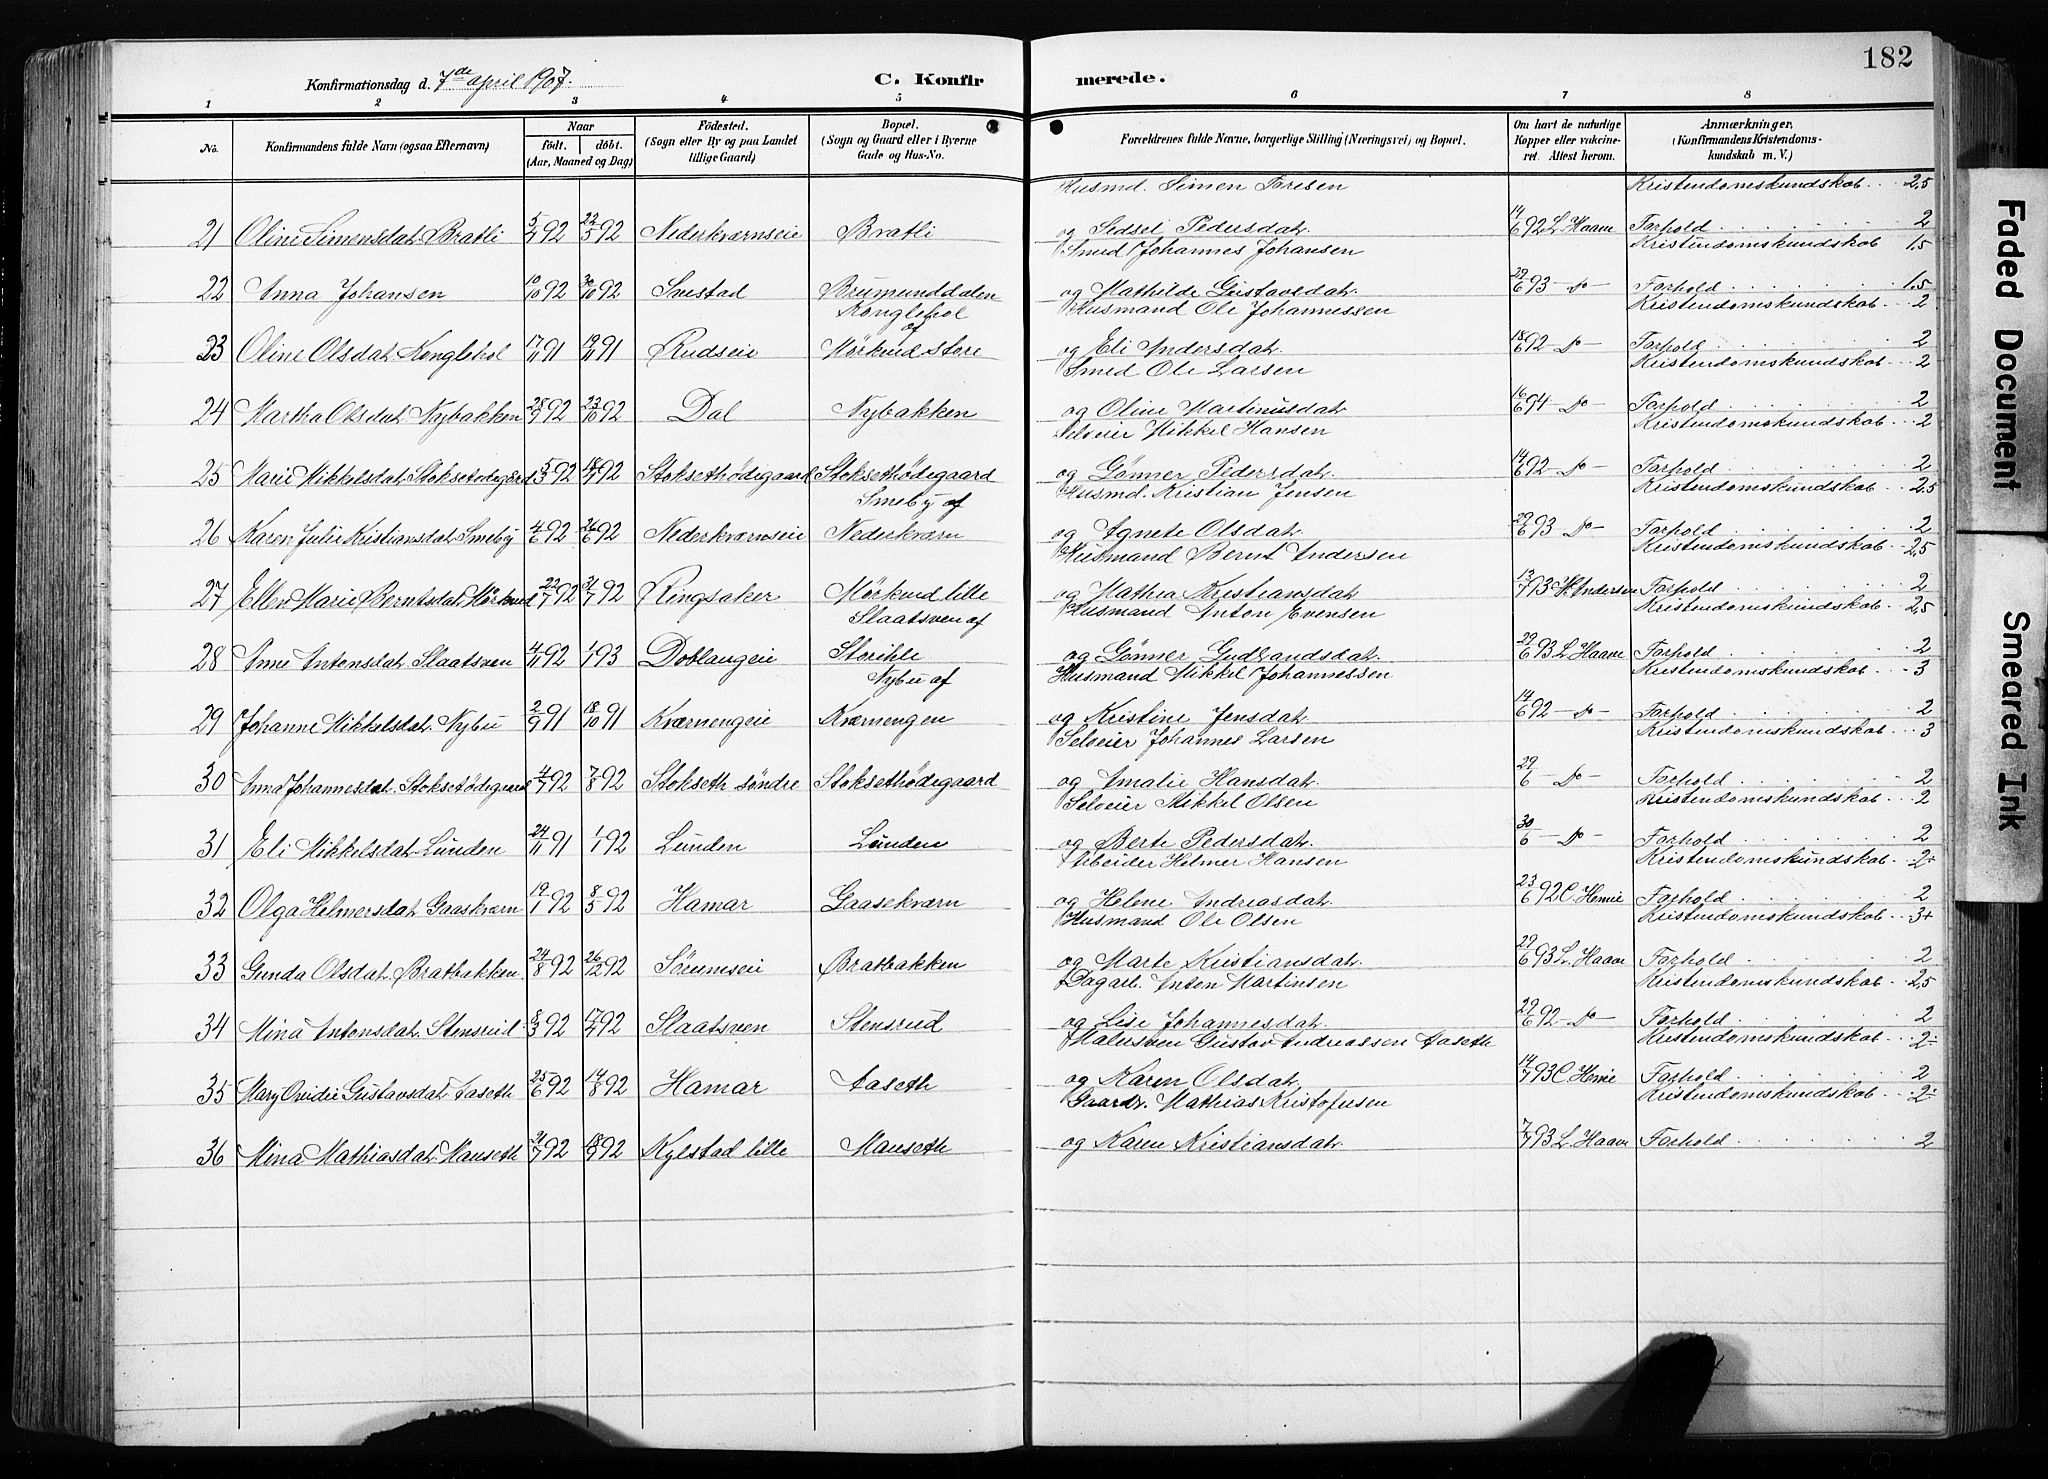 182
Konfirmationsdag d. 7de april 1907.
C. Konfirmerede.
1 2 3 4 5 6 7 8
No.
Konfirmandens fulde Navn (ogsaa Efternavn)
Naar
født. døbt.
(Aar, Maaned og Dag)
Fødested.
(Sogn eller By og paa Landet
tillige Gaard)
Bopæl.
(Sogn og Gaard eller i Byerne
Gade og Hus-No.
Forældrenes fulde Navne, borgerlige Stilling (Næringsvei) og Bopæl.
Om havt de naturlige
Kopper eller vakcine-
ret. Attest herom.
Anmærkninger.
(Konfirmandens Kristendoms-
kundskab m. V.)
Husmd. Simen Toresen Kristendomskundskab 2,5
21 Oline Simensdat. Bratli 92 22/5 92 Nederkværnseie Bratli og Sidsel Pedersdat. 14/6 92 L. Haave Forhold 2
Smed Johannes Johansen Kristendomskundskab 1.5
22 Anna Johansen 10/10 92 30/10 92 Snestad Brumunddalen og Mathilde Gustavsdat. 29/6 93 -Do- Forhold 1,5
Konglehol Husmand Ole Johannessen Kristendomskundskab 2
af
23 Oline Olsdat. Konglehol 17/11 91 19/11 91 Rudseie Mörkved store og Eli Andersdat. 18/6 92 -Do- Forhold 2
Smed Ole Larsen Kristendomskundskab 2
24 Martha Olsdat. Nybakken 28/9 92 23/10 92 Dal Nybakken og Oline Martinusdat. 16/6 94 -Do- Forhold 2
Selveier Mikkel Hansen Kristendomskundskab 2
25 Marie Mikkelsdat. Stoksetødegard 5/3 92 92 Stoksethödegaard Stoksethödegaard og Gönner Pedersdat. 14/6 92 -Do- Forhold 2
Smeby af Husmd. Kristian Jensen Kristendomskundskab 2,5
26 Karen Julie Kristiansdat. Smeby 4/6 92 26/6 92 Nederkværnseie Nederkværn og Agnete Olsdat. 29/6 93 -Do- Forhold 2
Husmand Bernt Andersen Kristendomskundskab 2,5
27 Ellen Marie Berntsdat. Mörkved 22/7 92 31/7 92 Ringsaker Mörkved lille og Mathea Kristiansdat. 13/7 93 H. Andersen Forhold 2
Slaatsven af Husmand Anton Evensen Kristendomskundskab 2,5
28 Anne Antonsdat. Slaatsven 4/11 92 1/1 93 Doblaugeie Storihle og Gönner Gudbrandsdat. 29/6 93 L. Haave Forhold 2
Nybu af Husmand Mikkel Johannessen Kristendomskundskab 3
29 Johanne Mikkelsdat. Nybu 2/9 91 18/10 91 Kværnengeie Kværnengen og Kristine Jensdat. 14/6 92 -Do- Forhold 2
Selveier Johannes Larsen Kristendomskundskab 3
30 Anna Johannesdat. Stoksetødegaard 92 7/8 92 Stokseth söndre Stoksethödegaard og Amalie Hansdat. 29/6 -Do- Forhold 2
Selveier Mikkel Olsen Kristendomskundskab 2
31 Eli Mikkelsdat. Lunden 24/11 91 1/1 92 Lunden Lunden og Berte Pedersdat. 30/6 -Do- Forhold 2
Arbeider Helmer Hansen Kristendomskundskab 2+
32 Olga Helmersdat. Gaaskværn 19/1 92 8/5 92 Hamar Gaasekværn og Helene Andreasdat. 23/6 92 C. Hemie Forhold 2
Husmand Ole Olsen Kristendomskundskab 3+
33 Gunda Olsdat. Bratbakken 24/8 92 26/12 92 Sörumseie Bratbakken og Marte Kristiansdat. 29/6 93 L. Haave Forhold 2
Dagarb. Anton Martinsen Kristendomskundskab 2,5
34 Mina Antonsdat. Stensrud 8/3 92 92 Slaatsven Stensrud og Lise Johannesdat. 29/6 92 -Do- Forhold 2
Malersven Gustav Andreassen Aaseth Kristendomskundskab 2÷
35 Mary Ovidie Gustavsdat. Aaseth 25/6 92 14/8 92 Hamar Aaseth og Karen Olsdat. 14/7 93 C. Hemie Forhold 2
Gaardr. Mathias Kristofersen Kristendomskundskab 2÷
36 Mina Mathiasdat. Mauseth 92 18/9 92 Kylstad lille Mauseth og Karen Kristiansdat. 7/7 93 L. Haave Forhold 2
Faded Document
Smeared Ink